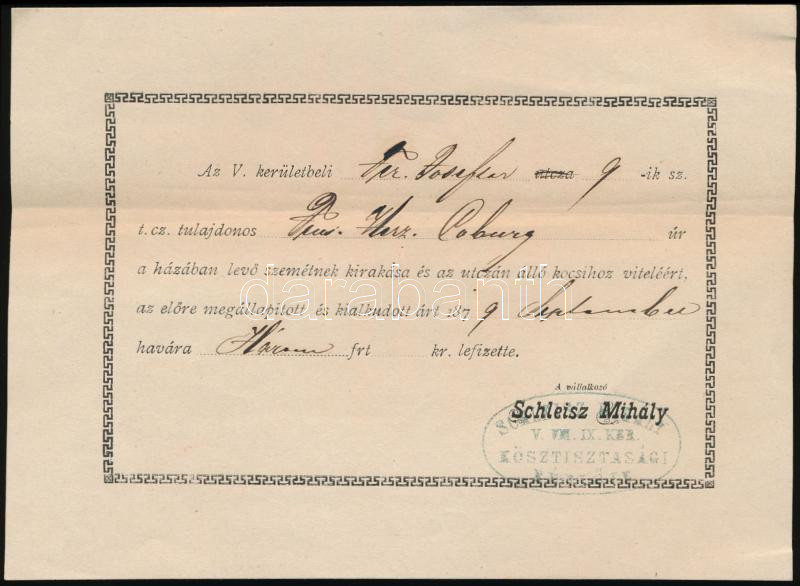 Az V. kerületbeli Fer. Josefsar utcza 9 -ik sz.
t. cz. tulajdonos Herz. Coburg úr
a házában levő szemétnek kirakása és az utczán álló kocsihoz viteléért,
az előre megállapitott és kialkudott árt 1879 September
havára Három frt kr. lefizette.
A vállalkozó
Schleisz Mihály
V. VIII. IX. KER.
KÖSZTISZTASÁGI
darabanth